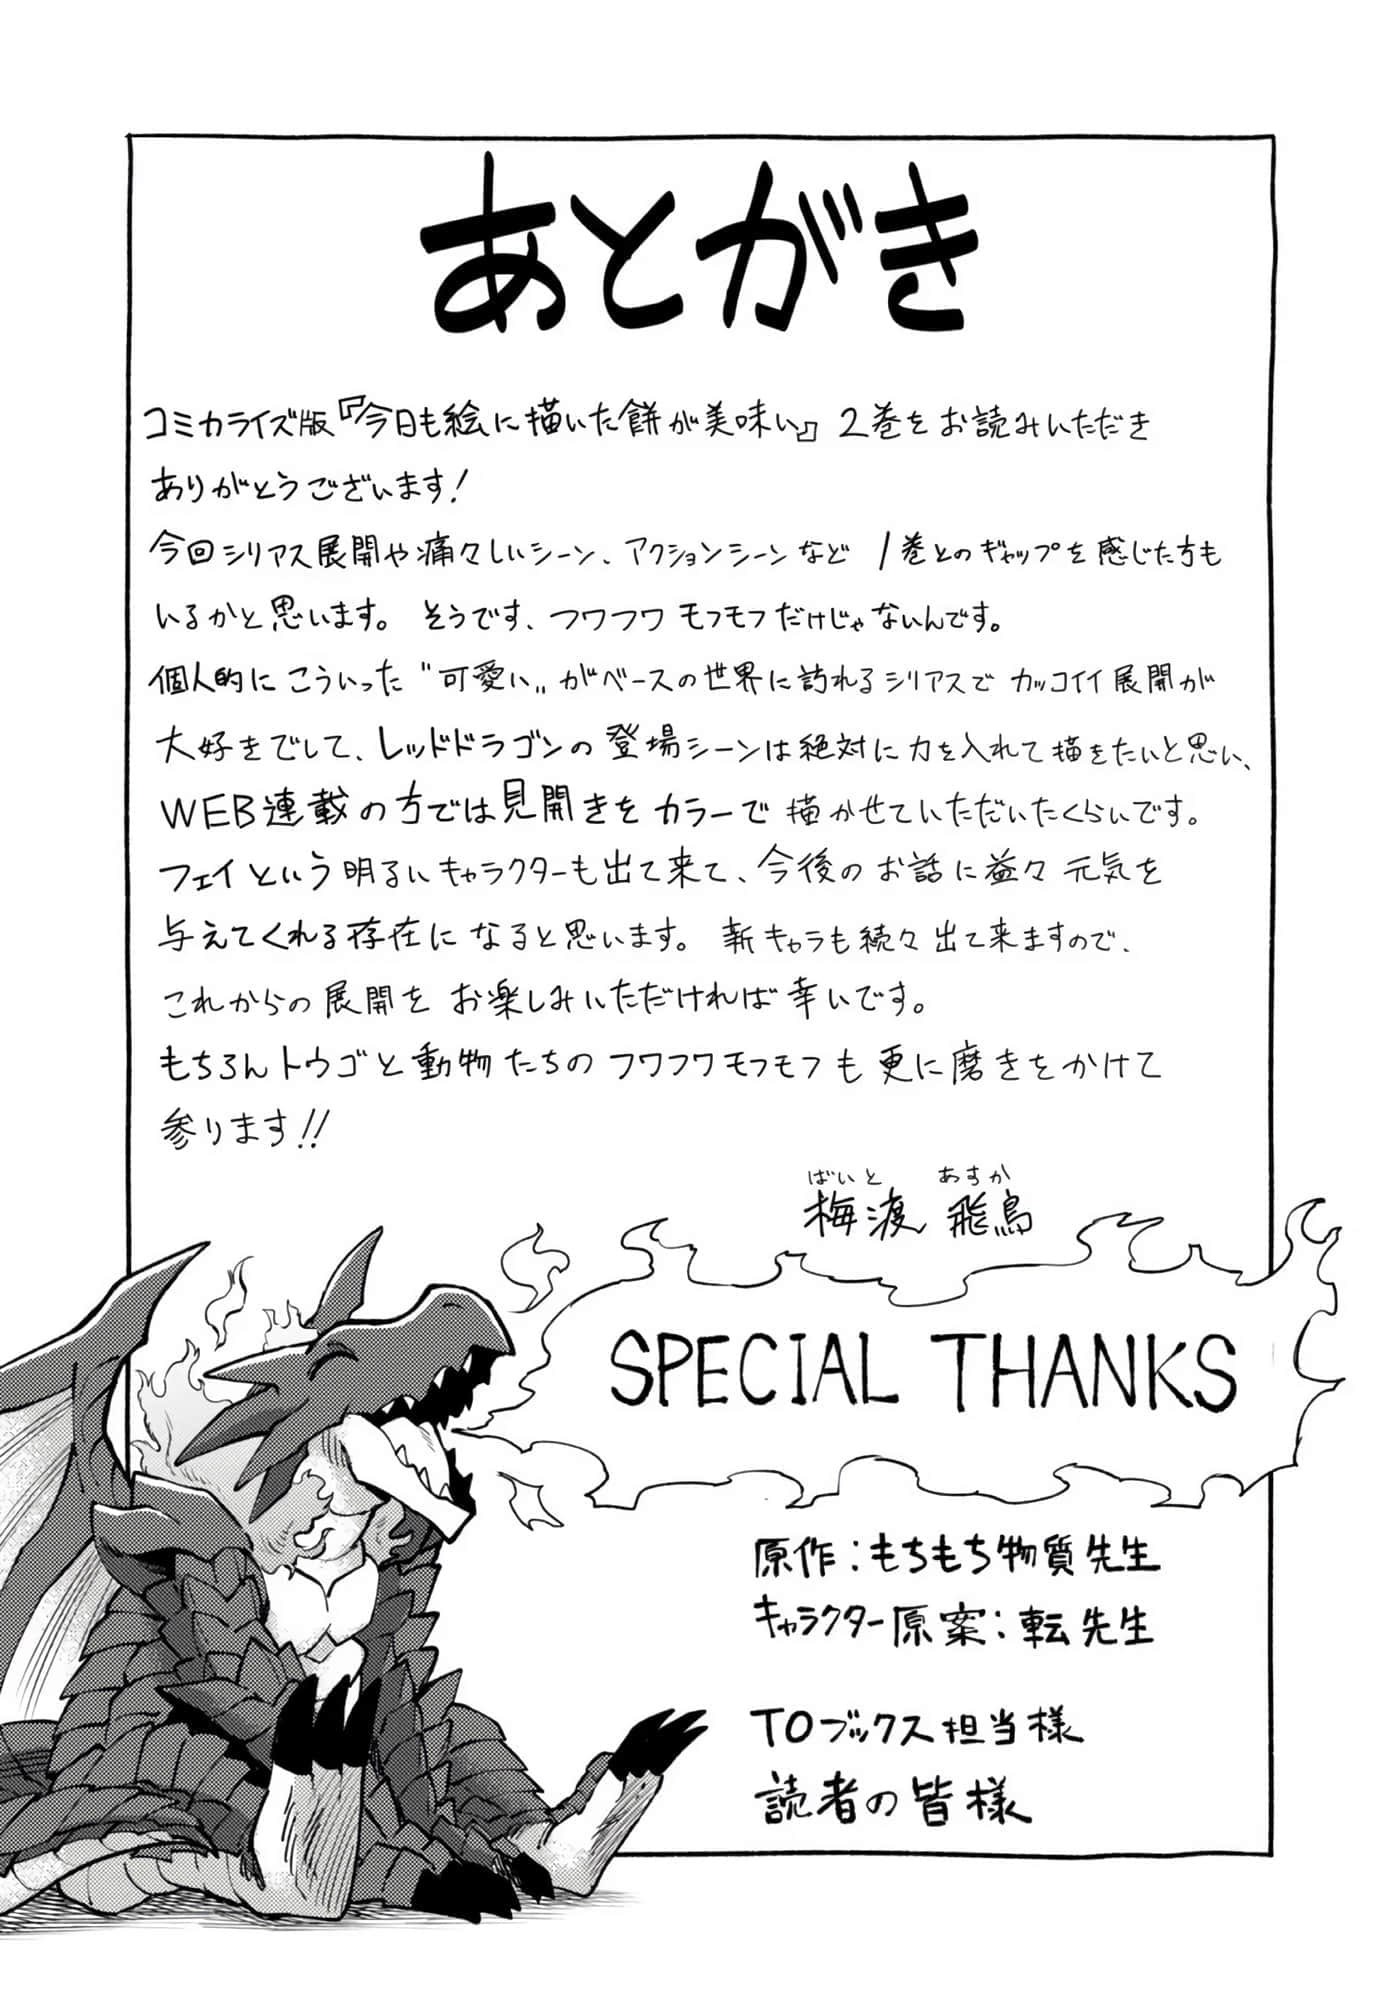 あとがき
コミカライズ版『今日も絵に描いた餅が美味い』2巻をお読みいただき
ありがとうございます!
今回シリアス展開や痛々しいシーン、アクションシーンなど 1巻とのギャップを感じた方も
いるかと思います。 そうです、フワフワ モフモフだけじゃないんです。
個人的に こういった "可愛い" がベースの世界に訪れるシリアスで カッコイイ展開が
大好きでして、レッドドラゴンの登場シーンは絶対に力を入れて描きたいと思い、
WEB連載の方では見開きをカラーで描かせていただいたくらいです。
フェイという明るいキャラクターも出て来て、今後のお話に益々元気を
与えてくれる存在になると思います。 新キャラも続々出て来ますので、
これからの展開をお楽しみいただければ幸いです。
もちろんトウゴと動物たちのフワフワモフモフも更に磨きをかけて
参ります!!
ばいと あすか
梅渡 飛鳥
SPECIAL THANKS
原作:もちもち物質先生
キャラクター原案:転先生
TOブックス担当様
読者の皆様